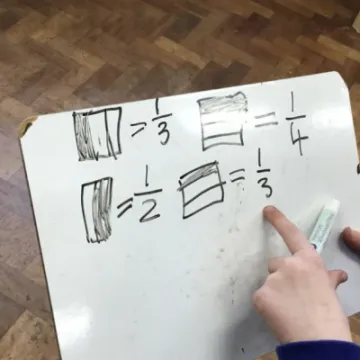 = 1/3 = 1/4
= 1/2 = 1/3